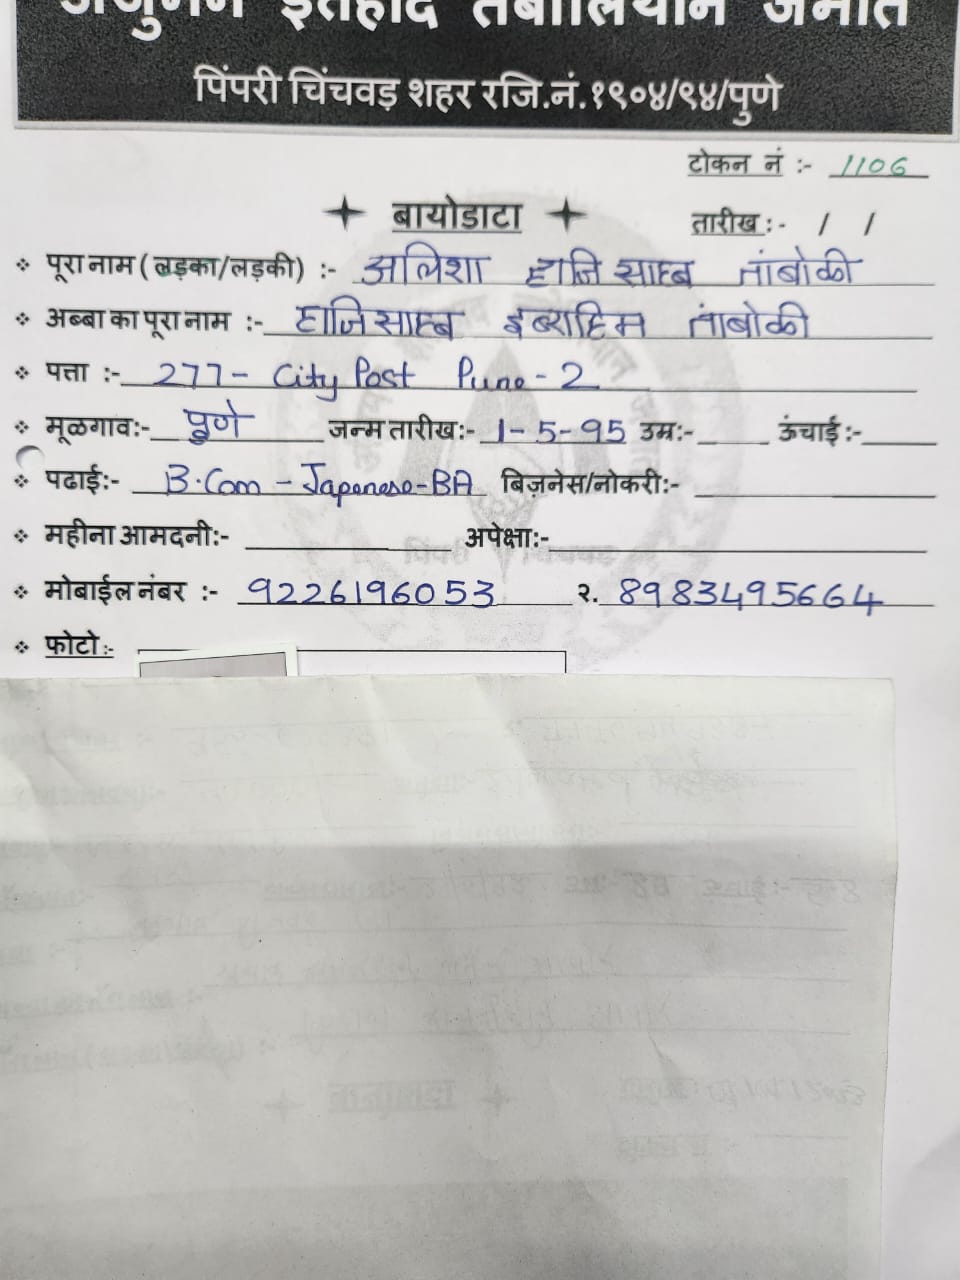 अंजुमन इत्तेहाद तंबोलियान जमात
पिंपरी चिंचवड़ शहर रजि.नं.१९०४/९४/पुणे
टोकन नं :- 1106
बायोडाटा
तारीख :- / /
पूरा नाम ( लड़का/लड़की) :- अलिशा हाजि साहब तांबोळी
अब्बा का पूरा नाम :- हाजिसाहब इब्राहिम तांबोळी
पत्ता :- 277- City Post Pune - 2
मूळगाव:- पुणे जन्म तारीख:- 1-5-95 उम्र:- ऊंचाई :-
पढाई:- B.Com - Japenese-BA बिज़नेस/नोकरी:-
महीना आमदनी:- अपेक्षा:-
मोबाईल नंबर :- 9226196053 २. 8983495664
फोटो:-